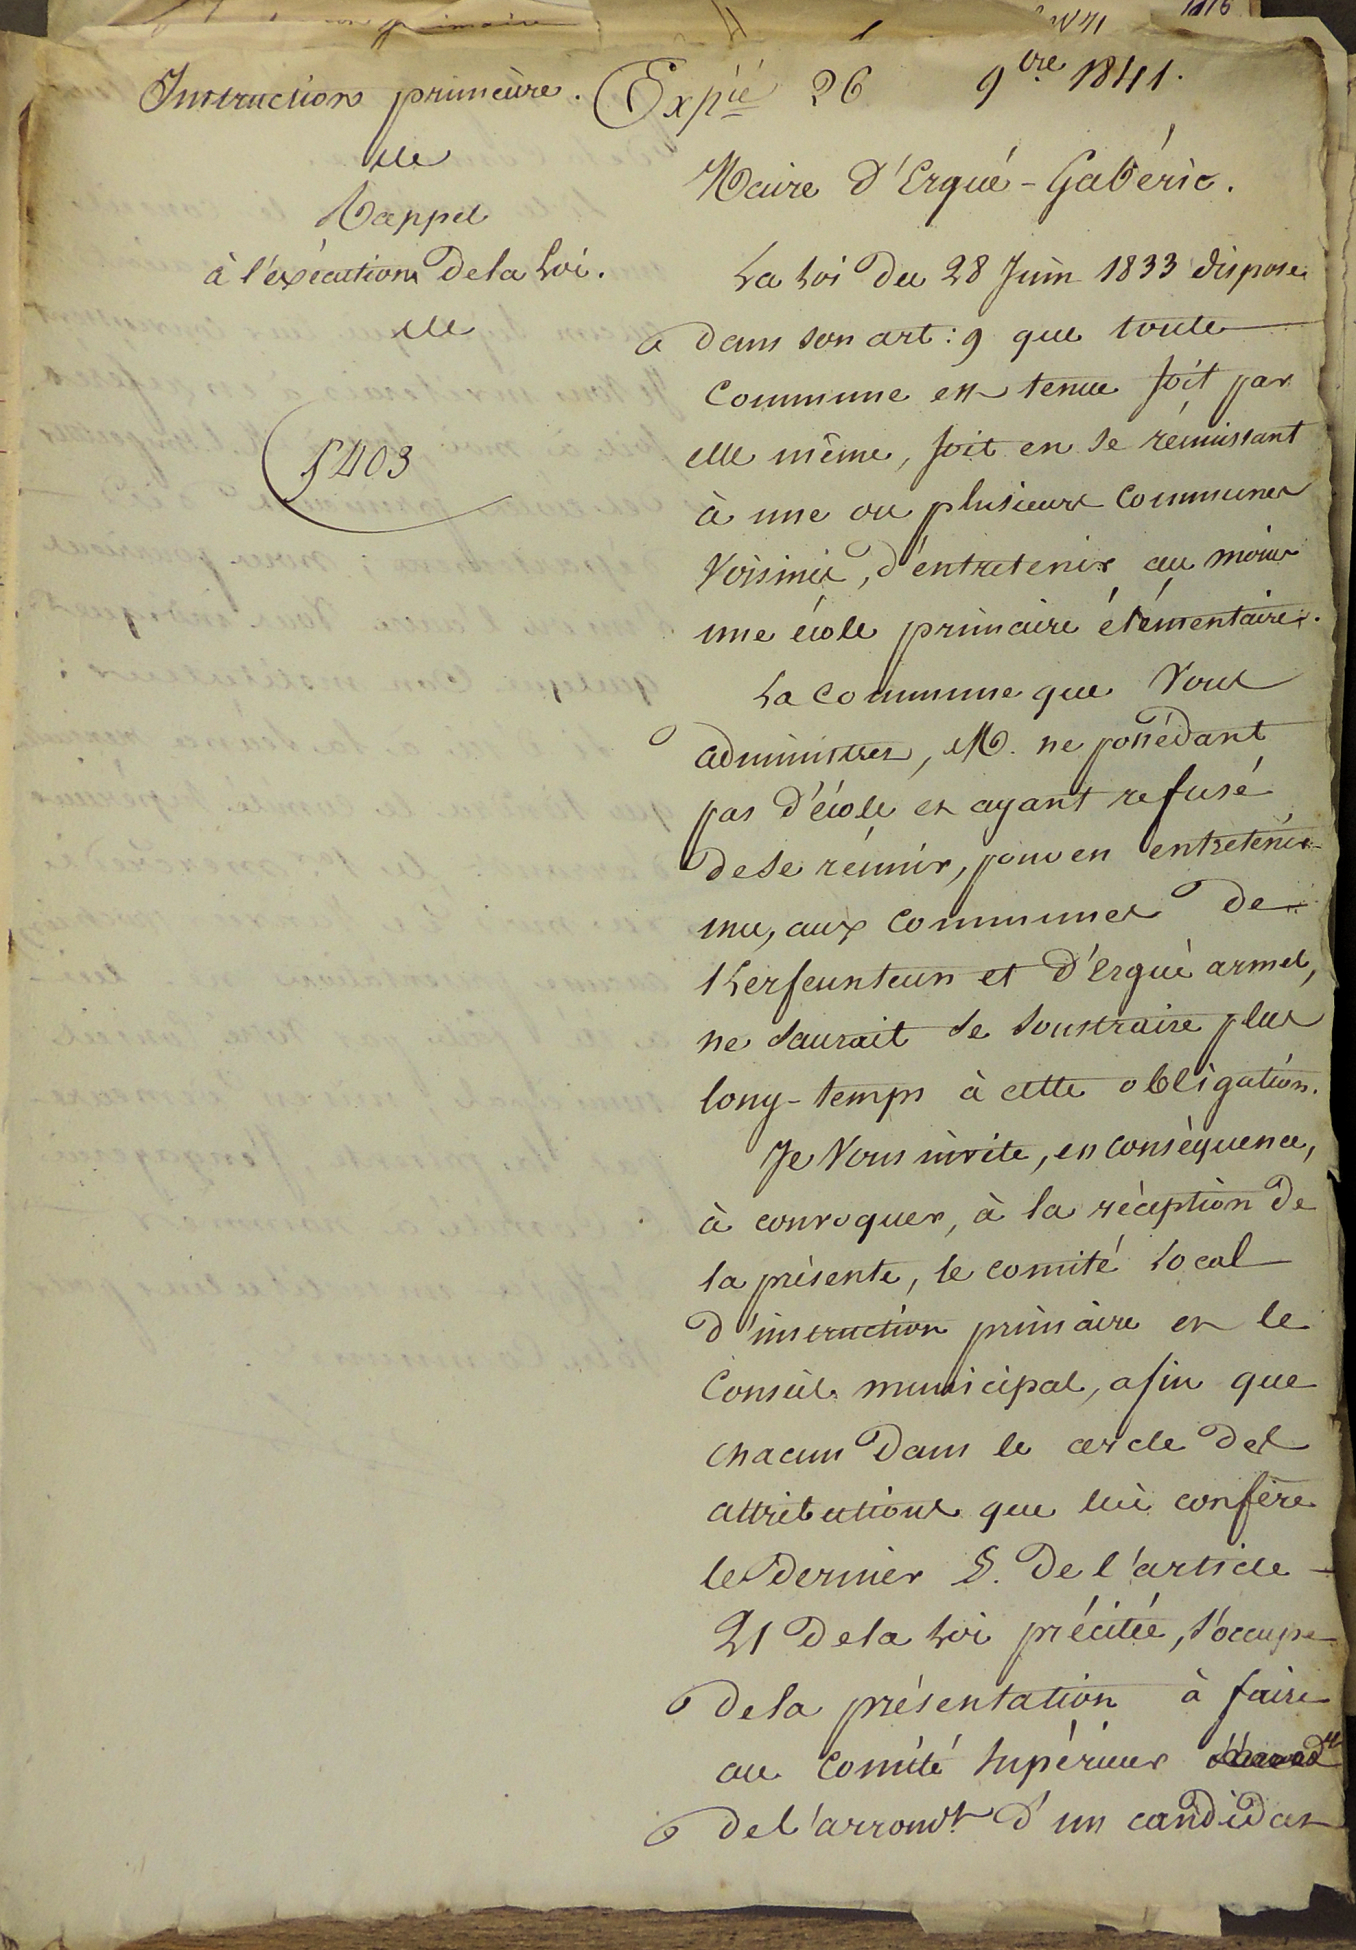 Instruction primaire.
Rappel
à l'exécution de la Loi.
5403
Expié 26 9bre 1841.
Maire d'Ergué-Gabéric.
La Loi du 28 Juin 1833 dispose
dans son art: 9 que toute
Commune est tenue soit par
elle même, soit en se réunissant
à une ou plusieurs Communes
Voisines, d'entretenir au moins
une école primaire élémentaire.
La Commune que Vous
administrez, M. ne possédant
pas d'école et ayant refusé
de se réunir, pour en entretenir
une, aux Communes de
Kerfeunteun et d'Ergué armel,
ne saurait se soustraire plus
long-temps à cette obligation.
Je Vous invite, en conséquence,
à convoquer, à la réception de
la présente, le comité Local
d'instruction primaire et le
Conseil municipal, afin que
chacun dans le cercle des
attributions que lui confère
le dernier §. de l'article
21 de la Loi précitée, s'occupe
de la présentation à faire
au Comité Supérieur
de l'arrondt d'un candidat